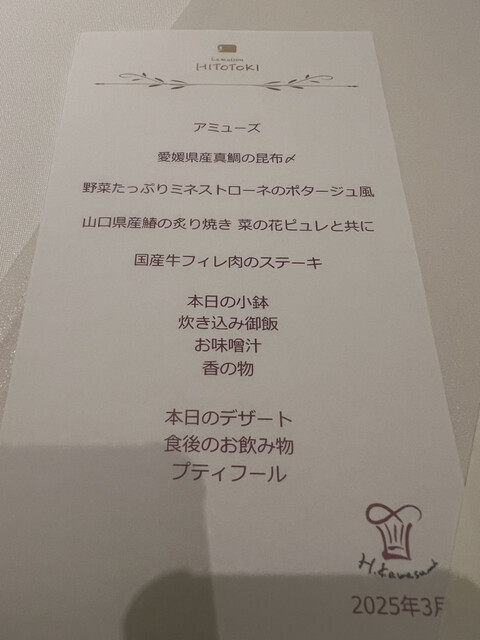 La maison
HITOTOKI
アミューズ
愛媛県産真鯛の昆布〆
野菜たっぷりミネストローネのポタージュ風
山口県産鰆の炙り焼き 菜の花ピュレと共に
国産牛フィレ肉のステーキ
本日の小鉢
炊き込み御飯
お味噌汁
香の物
本日のデザート
食後のお飲み物
プティフール
2025年3月